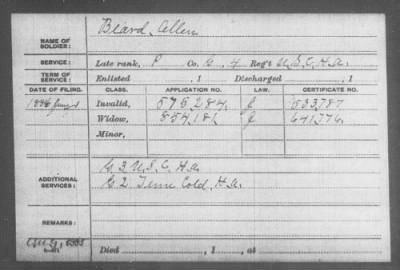 Beard, Allen
NAME OF SOLDIER:
SERVICE: Late rank, P Co. G. 4 Reg't U.S.C.H.A.
TERM OF SERVICE: Enlisted , 1 Discharged , 1
DATE OF FILING. CLASS. APPLICATION NO. LAW. CERTIFICATE NO.
1886 Invalid, 575284 J 533787
Widow, 854181 J 641776
Minor,
ADDITIONAL SERVICES:
G 3 U.S.C.H.A.
G 2 Tenn Cold. H.A.
REMARKS:
Died , 1 , at